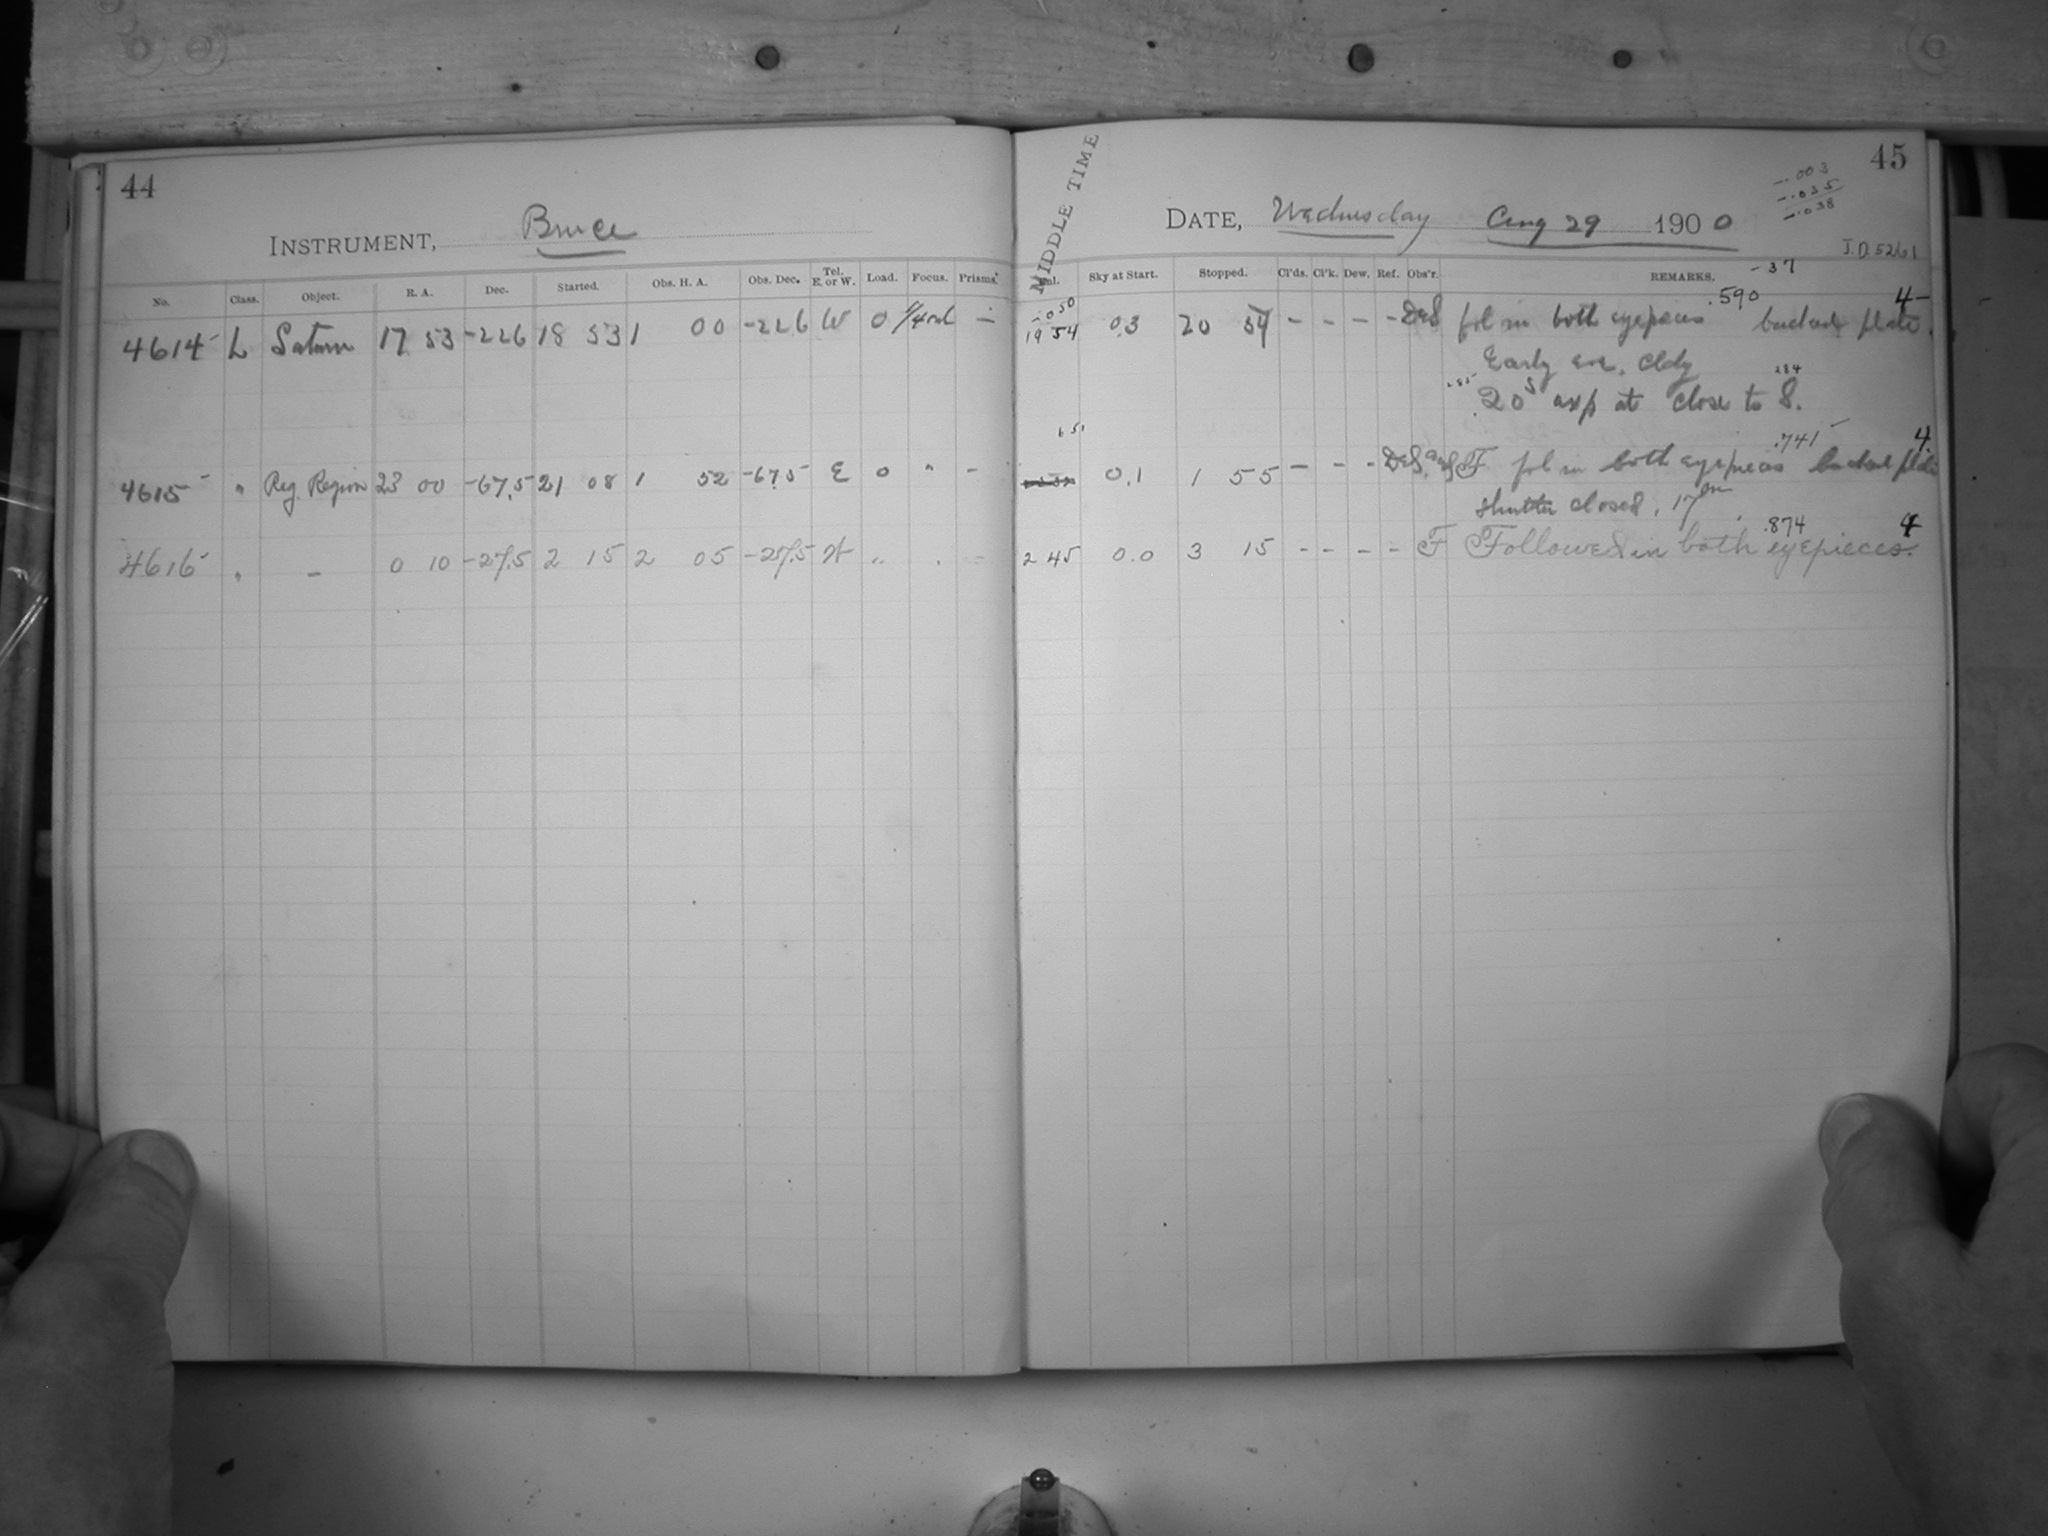 44
INSTRUMENT, Bruce
No. Class. Object. R. A. Dec. Started. Obs. H. A. Obs. Dec. Tel. E. or W. Load. Focus. Prisms.
4614 L Saturn 17 53 -22.6 18 53 1 00 -22.6 W 0 —
4615 " Reg. Region 23 00 -67.5 21 08 1 52 -67.5 E 0 " -
4616 " — 0 10 -27.5 2 15 2 05 -27.5 W " "
MIDDLE TIME
45
-.003
-.035
-.038
DATE, Wednesday Aug 29 1900
J.D. 5261
Sky at Start. Stopped. Cl'ds. Cl'k. Dew. Ref. Obs'r. REMARKS. -37
-.050 .590 4
19 54 0.3 20 54 - - - - DeS fol in both eyepieces backed plate.
Early eve. cldy
.285 .284
20s exp at close to S.
651 .741 4
0.1 1 55 - - - DeS and F fol in both eyepieces backed plate
shutter closed, 17m
.874 4
2 45 0.0 3 15 - - - - F Followed in both eyepieces.